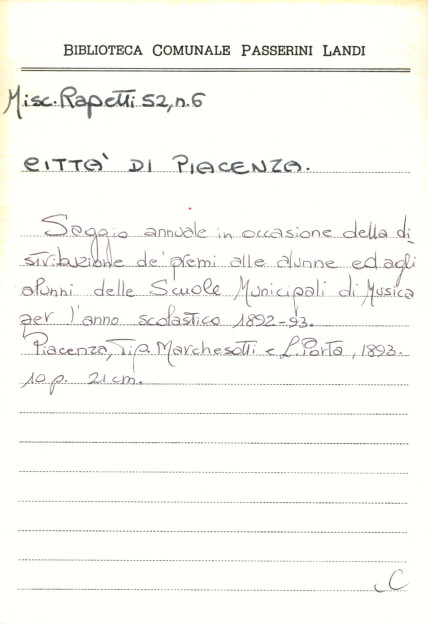 BIBLIOTECA COMUNALE PASSERINI LANDI
Misc. Rapetti 52, n. 6
CITTA' DI PIACENZA.
Saggio annuale in occasione della di
stribuzione de' premi alle alunne ed agli
alunni delle Scuole Municipali di Musica
per l'anno scolastico 1892-93.
Piacenza, Tip. Marchesotti e L. Porta, 1893.
10 p. 21 cm.
C